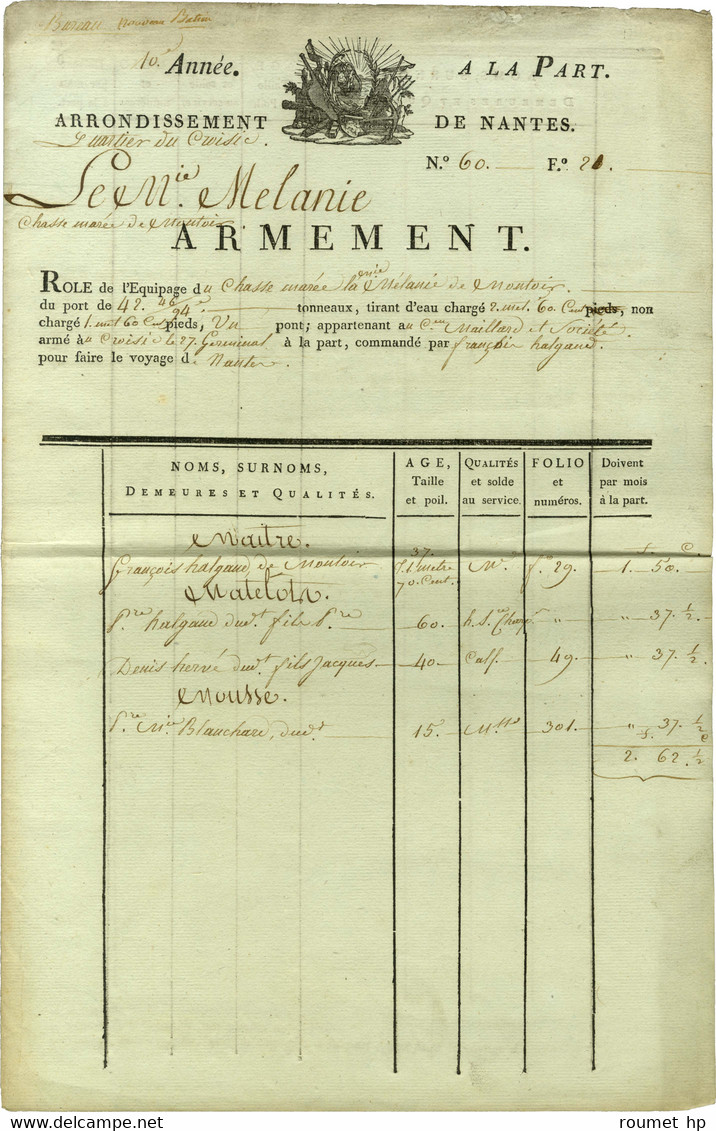 Bureau
10.e Année. A LA PART.
ARRONDISSEMENT DE NANTES.
Quartier du Croisic.
N.º 60. F.º 21.
Le M.ie Melanie
Chasse marée de Montoir
ARMEMENT.
ROLE de l'Equipage du Chasse marée la Mie Mélanie de Montoir.
du port de 42. 46/94.e tonneaux, tirant d'eau chargé 2. met. 60. Cent pieds, non
chargé 1. met 60 Cent pieds, Un pont; appartenant au C.en Maillard et Société
armé au Croisic le 27. Germinal à la part, commandé par françois halgand.
pour faire le voyage de Nantes.
NOMS, SURNOMS, DEMEURES ET QUALITÉS.
AGE, Taille et poil.
QUALITÉS et solde au service.
FOLIO et numéros.
Doivent par mois à la part.
Maitre.
f. c.
37.
françois halgand de Montoir T. 1. metre 70 Cent. M.e f.o 29. 1. 50.
Matelots.
P.re halgand dud.t fils P.re 60. h. S.ce " " 37. ½
Denis hervé dud.t fils Jacques 40. Calf. 49. " 37. ½
Mousse.
P.re M.ie Blanchard, dud.t 15. M.sse 301. " 37. ½
f. c
2. 62. ½
roumet hp